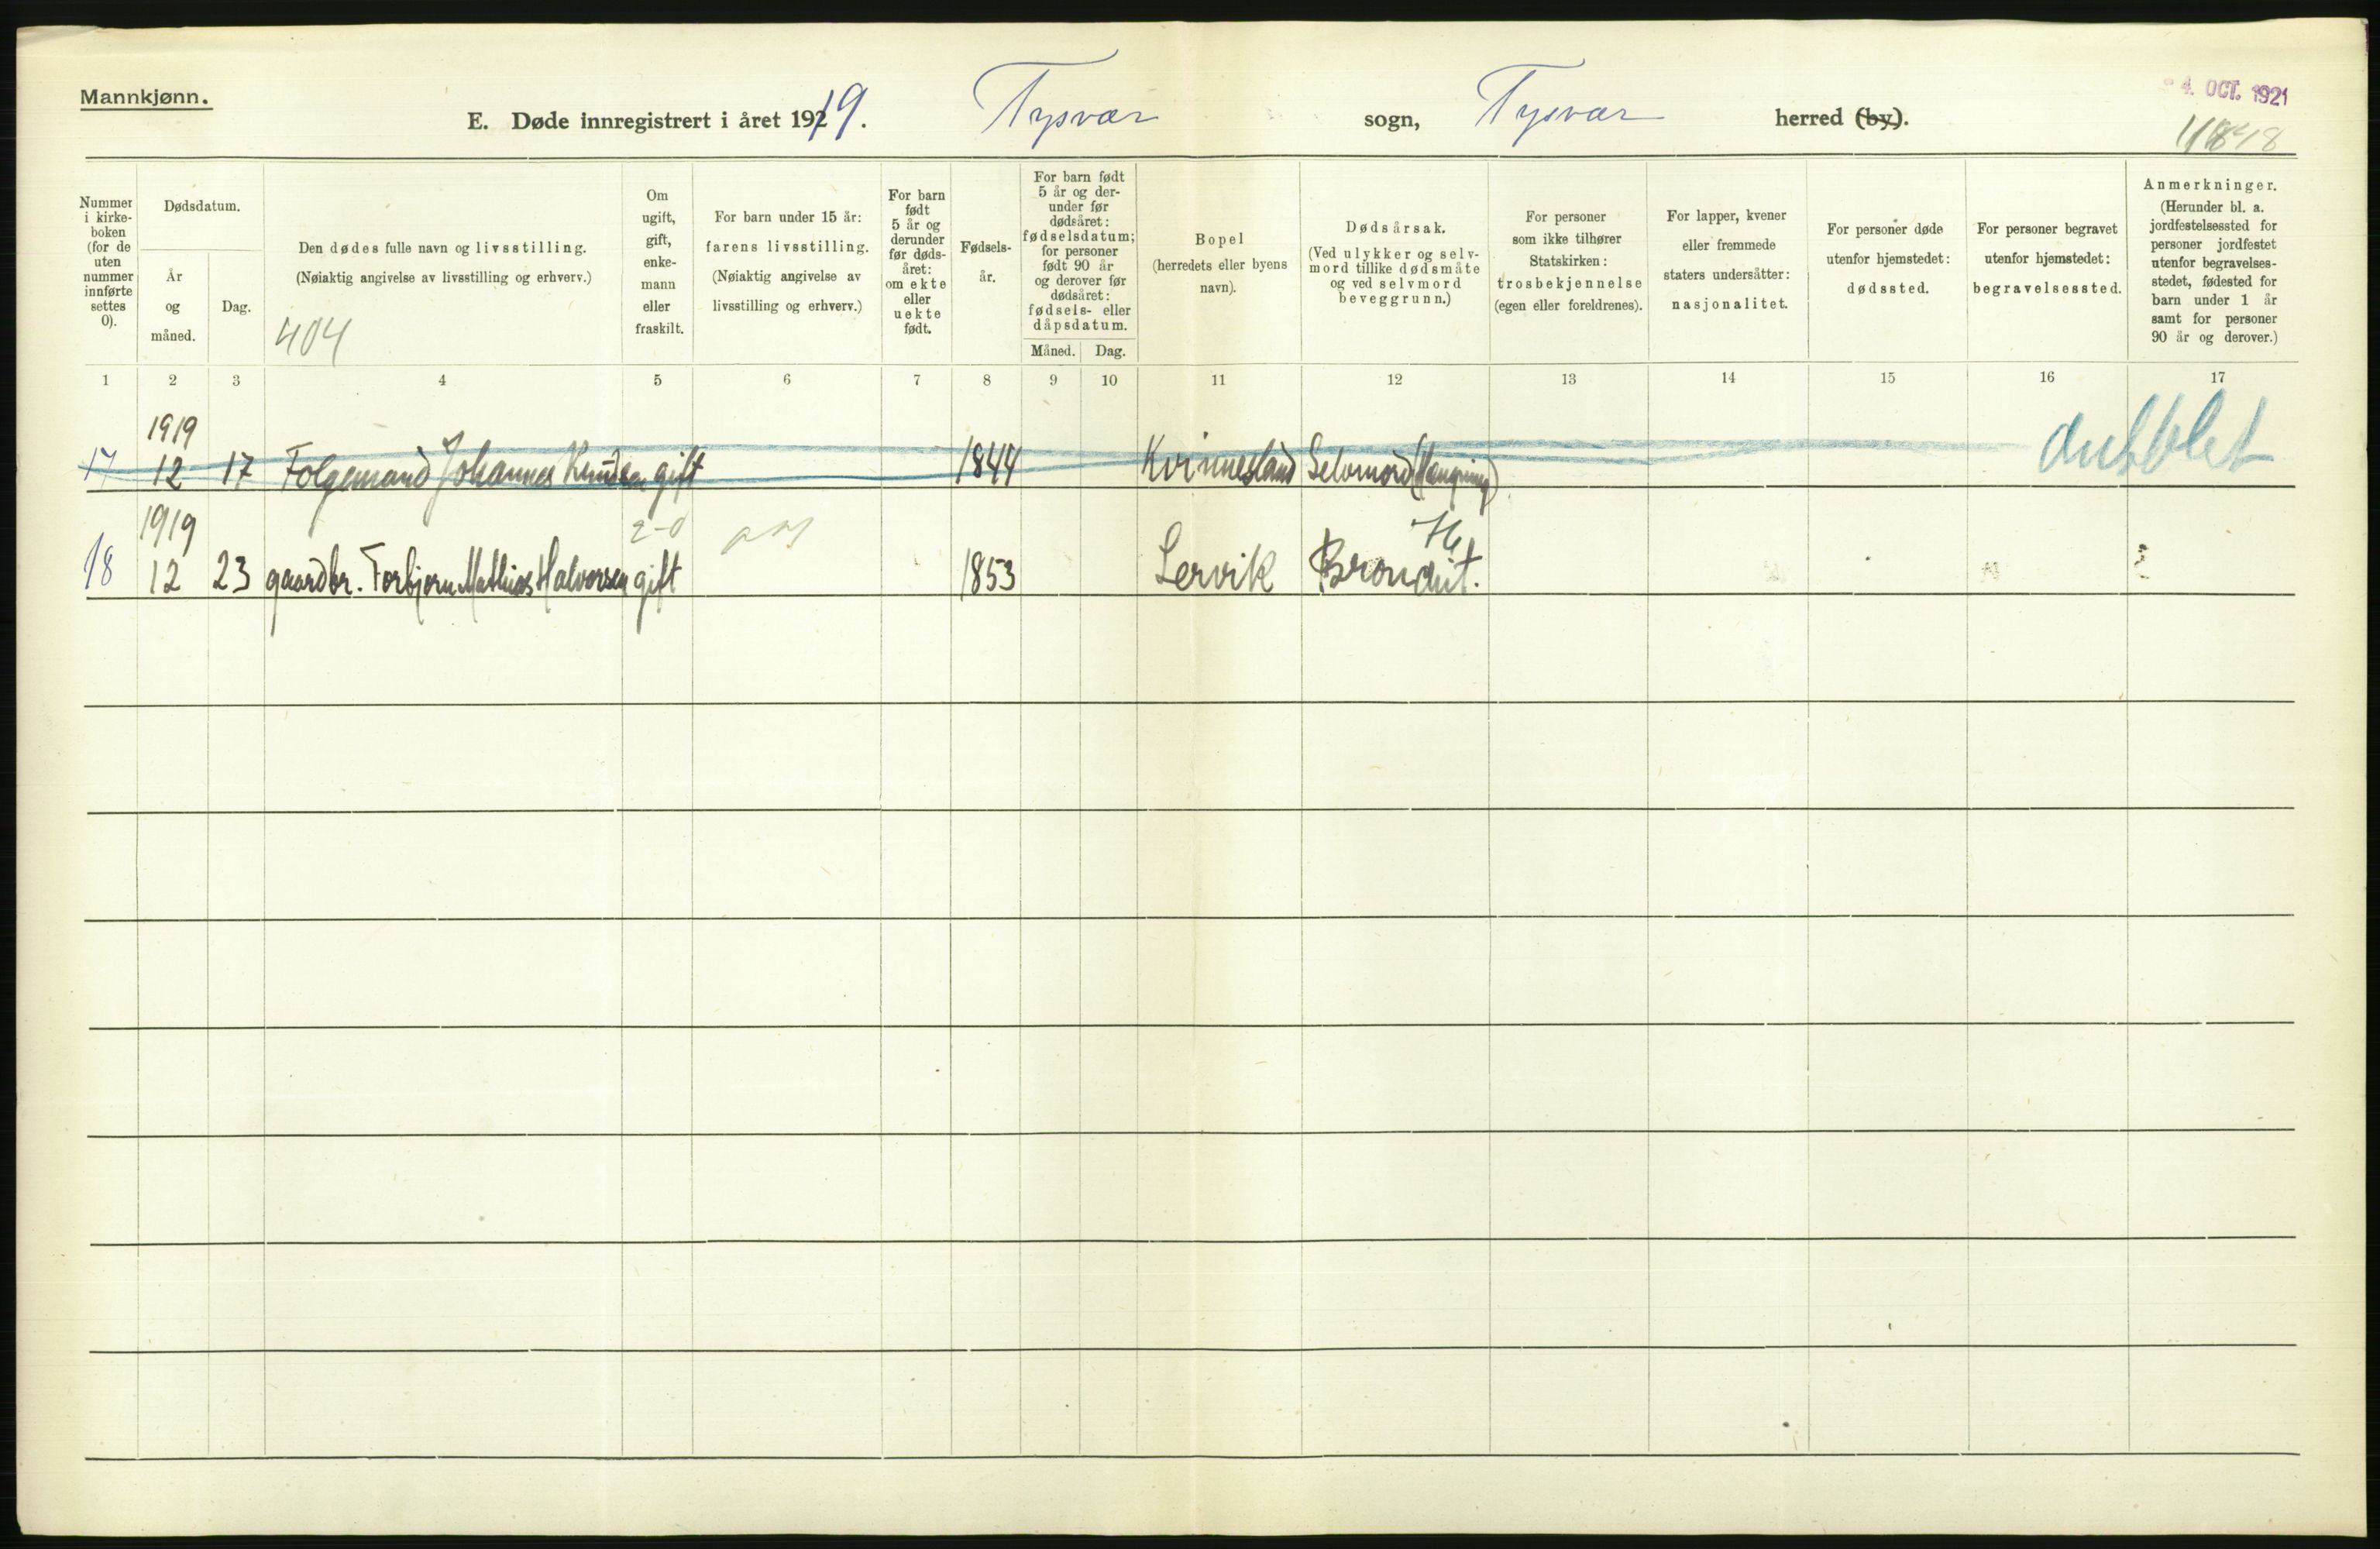 Mannkjønn.
E. Døde innregistrert i året 1919.
Tysvær sogn, Tysvær herred (by).
4. OCT. 1921
Nummer i kirke-boken (for de uten nummer innførte settes 0).
Dødsdatum.
År og måned.
Dag.
Den dødes fulle navn og livsstilling.
(Nøiaktig angivelse av livsstilling og erhverv.)
404
Om ugift, gift, enke-mann eller fraskilt.
For barn under 15 år:
farens livsstilling.
(Nøiaktig angivelse av livsstilling og erhverv.)
For barn født 5 år og derunder før døds-året: om ekte eller uekte født.
Fødsels-år.
For barn født 5 år og der-under før dødsåret: fødselsdatum; for personer født 90 år og derover før dødsåret: fødsels- eller dåpsdatum.
Måned. Dag.
Bopel
(herredets eller byens navn).
Dødsårsak.
(Ved ulykker og selv-mord tillike dødsmåte og ved selvmord beveggrunn.)
For personer som ikke tilhører Statskirken:
trosbekjennelse
(egen eller foreldrenes).
For lapper, kvener eller fremmede staters undersåtter:
nasjonalitet.
For personer døde utenfor hjemstedet:
dødssted.
For personer begravet utenfor hjemstedet:
begravelsessted.
Anmerkninger.
(Herunder bl. a. jordfestelsessted for personer jordfestet utenfor begravelses-stedet, fødested for barn under 1 år samt for personer 90 år og derover.)
1 2 3 4 5 6 7 8 9 10 11 12 13 14 15 16 17
1919
17 12 17 Folgemand Johannes Knudsen gift 1844 Kvinnesland Selvmord (Hængning) dubblet
1919 2-0
18 12 23 gaardbr. Torbjørn Mathias Halvorsen gift 1853 Lervik